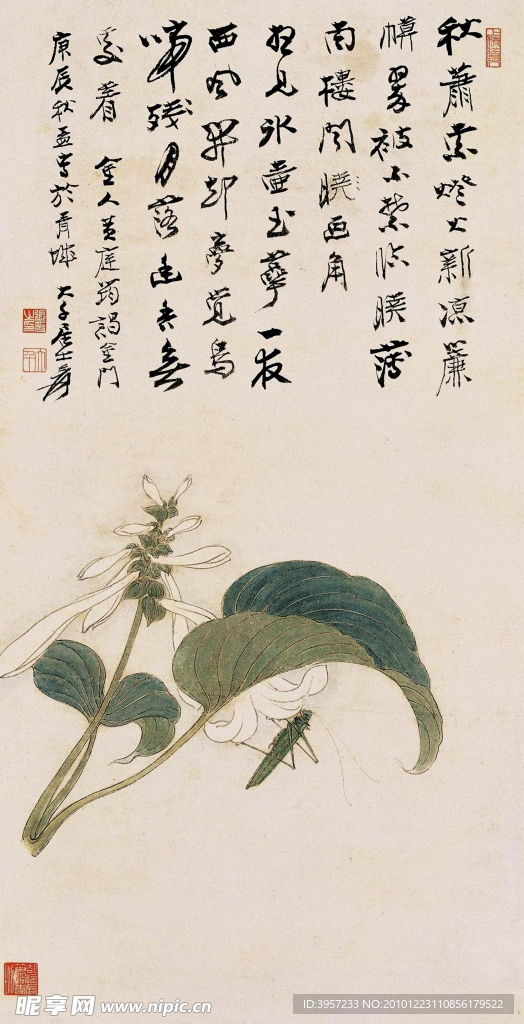 秋蕭索燈火新涼簾
幙翠被不禁臨曉薄
南樓聞曉画角
想見冰壺玉萼一夜
西風開却夢覺烏
啼殘月落幽香無
處着 金人黃庭筠謁金門
庚辰秋孟寫於青城 大千居士爰
昵享网 www.nipic.cn
ID:3957233 NO:20101223110856179522